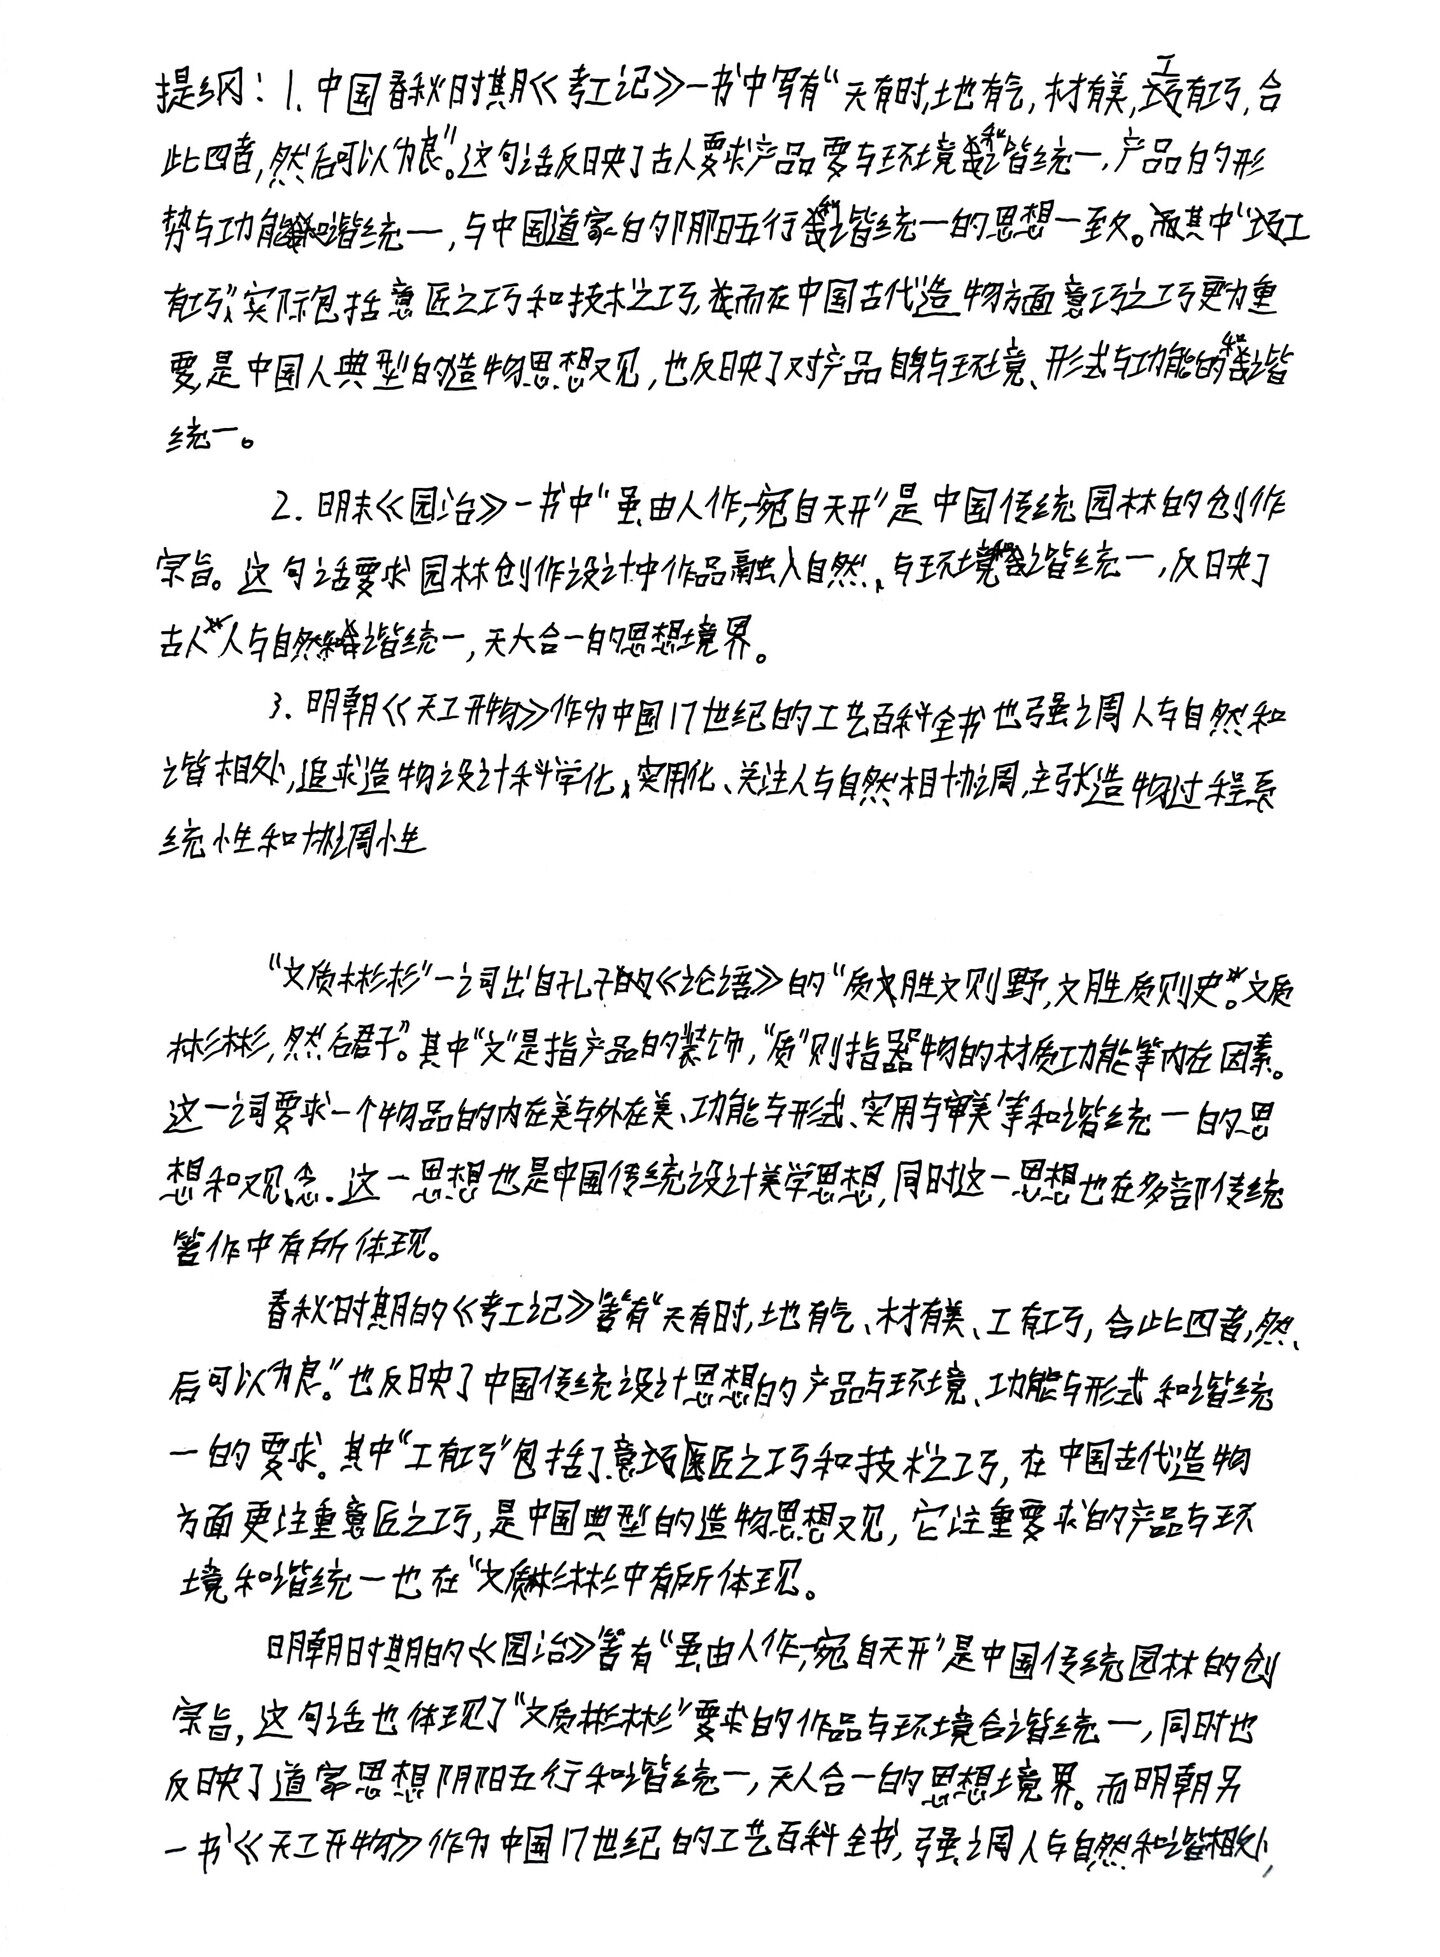 提纲：1.中国春秋时期《考工记》一书中写有“天有时,地有气,材有美,工有巧,合
此四者,然后可以为良”。这句话反映了古人要求产品要与环境和谐统一,产品的形
势与功能和谐统一,与中国道家的阴阳五行和谐统一的思想一致。而其中“工
有巧”,实际包括意匠之巧和技术之巧,而在中国古代造物方面意巧之巧更为重
要,是中国人典型的造物思想观,也反映了对产品自身与环境、形式与功能的和谐
统一。
2.明末《园治》一书中“虽由人作,宛自天开”是中国传统园林的创作
宗旨。这句话要求园林创作设计中作品融入自然、与环境和谐统一,反映了
古人人与自然和谐统一,天大合一的思想境界。
3.明朝《天工开物》作为中国17世纪的工艺百科全书也强调人与自然和
谐相处,追求造物设计科学化、实用化、关注人与自然相协调,主张造物过程系
统性和协调性
“文质彬彬”一词出自孔子的《论语》的“质胜文则野,文胜质则史。文质
彬彬,然后君子”。其中“文”是指产品的装饰,“质”则指器物的材质功能等内在因素。
这一词要求一个物品的内在美与外在美、功能与形式、实用与审美等和谐统一的思
想和观念.这一思想也是中国传统设计美学思想,同时这一思想也在多部传统
著作中有所体现。
春秋时期的《考工记》著有“天有时,地有气、材有美、工有巧,合此四者,然
后可以为良”。也反映了中国传统设计思想的产品与环境、功能与形式和谐统
一的要求。其中“工有巧”包括了意匠之巧和技术之巧,在中国古代造物
方面更注重意匠之巧,是中国典型的造物思想观,它注重要求的产品与环
境和谐统一也在“文质彬彬中有所体现。
明朝时期的《园治》著有“虽由人作,宛自天开”是中国传统园林的创
宗旨,这句话也体现了“文质彬彬”要求的作品与环境合谐统一,同时也
反映了道家思想阴阳五行和谐统一,天人合一的思想境界。而明朝另
一书《天工开物》作为中国17世纪的工艺百科全书,强调人与自然和谐相处,